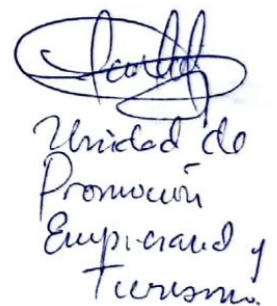 Unidad de
Promoción
Empresarial y
Turismo.